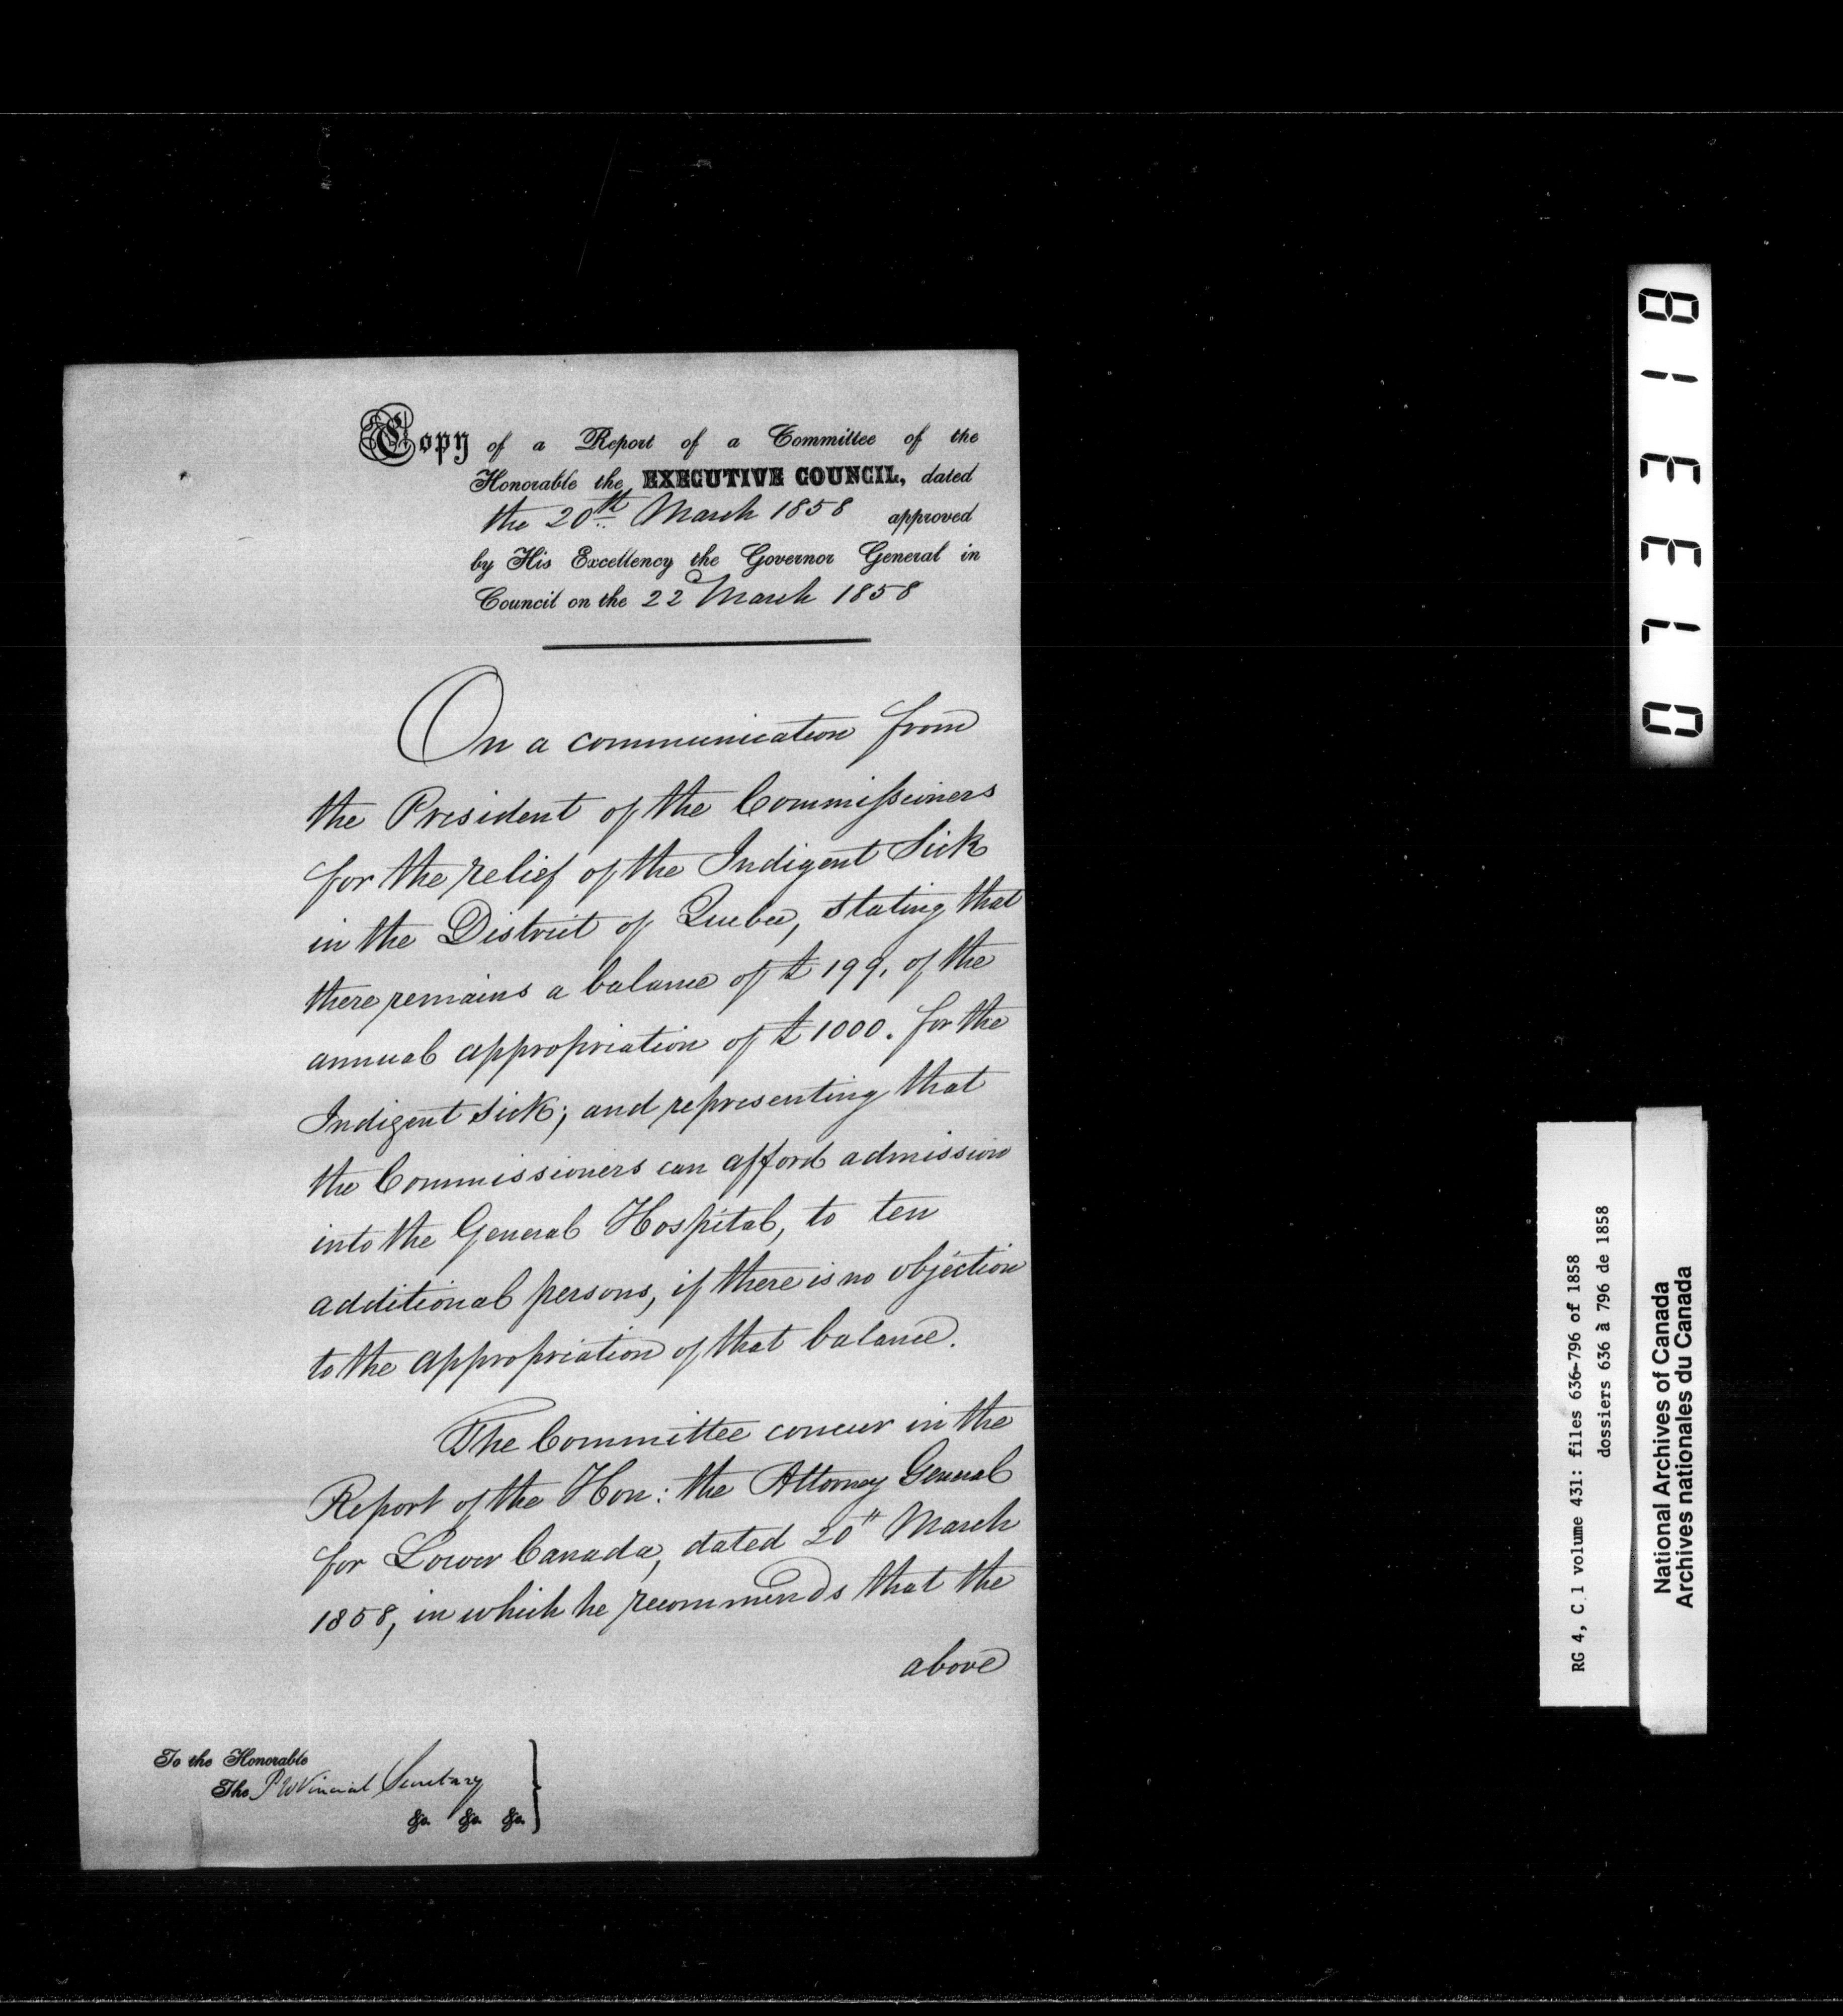 Copy of a Report of a Committee of the
Honorable the EXECUTIVE COUNCIL, dated
the 20th March 1858 approved
by His Excellency the Governor General in
Council on the 22 March 1858
On a communication from
the President of the Commissioners
for the relief of the Indigent Sick
in the District of Quebec, stating that
there remains a balance of £199, of the
annual appropriation of £1000. for the
Indigent sick; and representing that
the Commissioners can afford admission
into the General Hospital, to ten
additional persons, if there is no objection
to the appropriation of that balance.
The Committee concur in the
Report of the Hon: the Attorney General
for Lower Canada, dated 20th March
1858, in which he recommends that the
above
To the Honorable
The Provincial Secretary
&c. &c. &c.
013318
RG 4, C.1 volume 431: files 636-796 of 1858
dossiers 636 à 796 de 1858
National Archives of Canada
Archives nationales du Canada